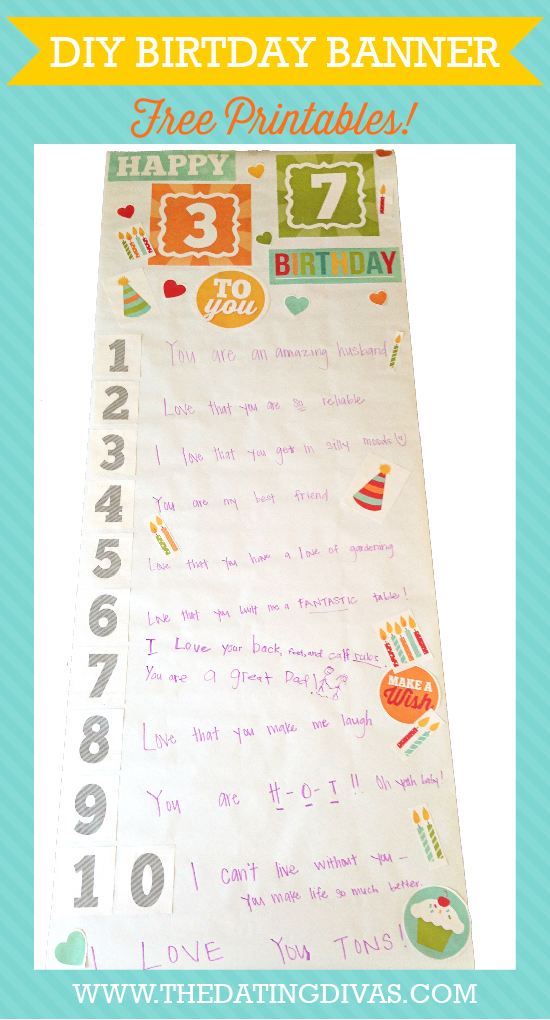 DIY BIRTDAY BANNER
Free Printables!
HAPPY
3 7
BIRTHDAY
TO
you
1 You are an amazing husband
2 Love that you are so reliable
3 I love that you get in silly moods
4 You are my best friend
5 Love that you have a love of gardening
6 Love that you built me a FANTASTIC table!
I Love your back, feet, and calf rubs.
7 You are a great Dad!
MAKE A
Wish
8 Love that you make me laugh
9 You are H-O-T!! Oh yeah baby!
10 I can't live without you—
You make life so much better.
I LOVE You TONS!
WWW.THEDATINGDIVAS.COM